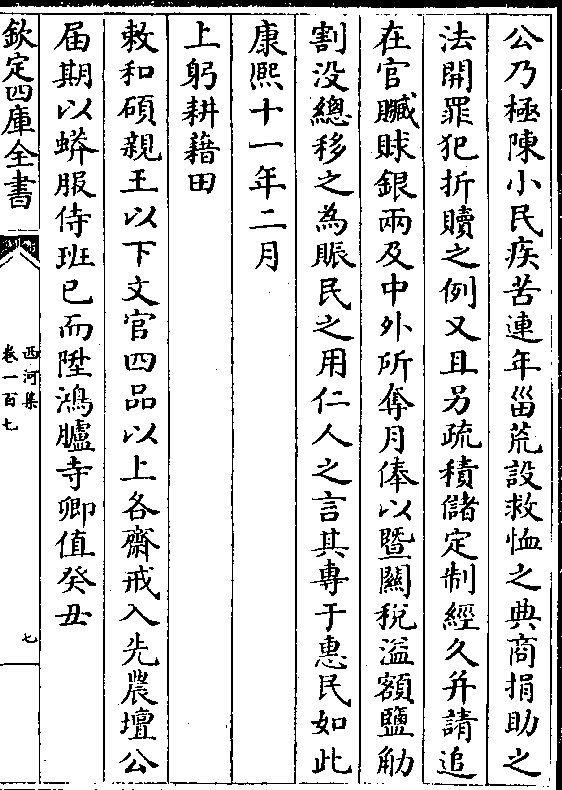 公乃極陳小民疾苦連年甾荒設救恤之典商捐助之
法開罪犯折贖之例又且另疏積儲定制經久并請追
在官贓賕銀兩及中外所奪月俸以暨關稅溢額鹽觔
割没總移之為賑民之用仁人之言其專于惠民如此
康熙十一年二月
上躬耕藉田
敕和碩親王以下文官四品以上各齋戒入先農壇公
届期以蟒服侍班已而陞鴻臚寺卿值癸丑
欽定四庫全書
西河集
卷一百七
七